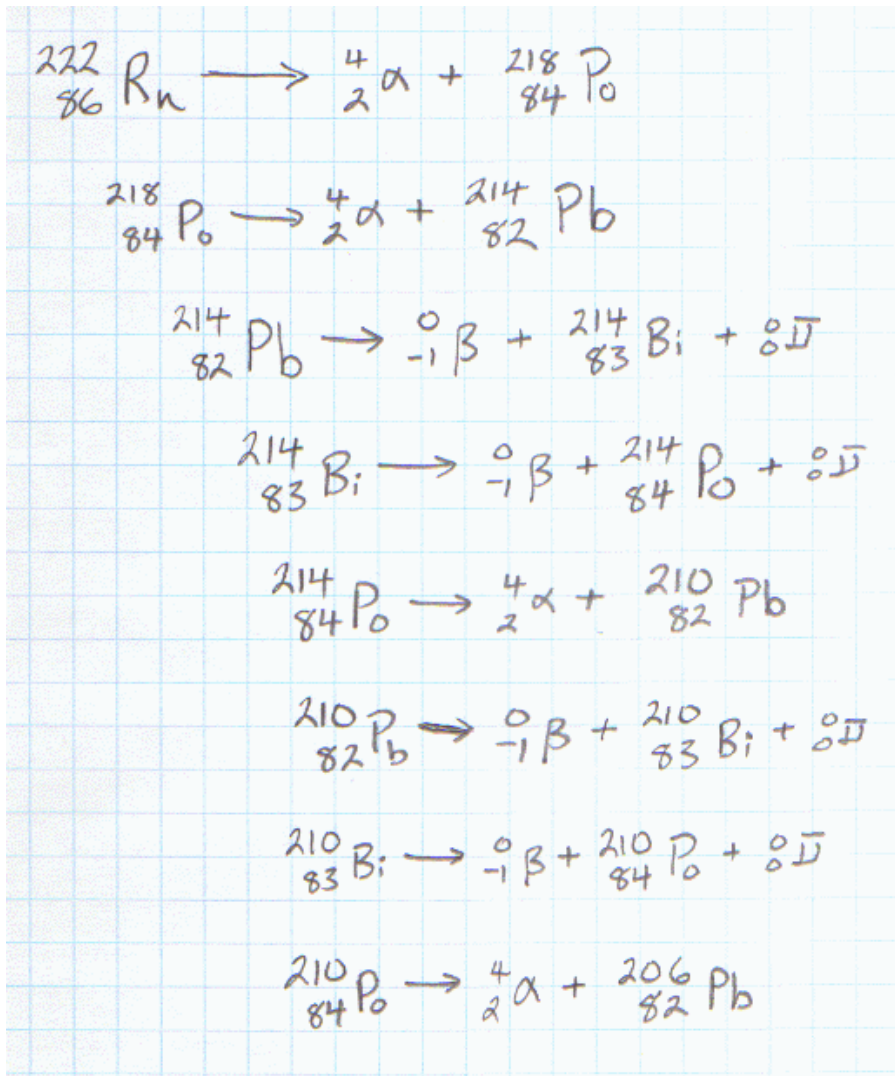 ²²²₈₆Rn ⟶ ⁴₂α + ²¹⁸₈₄Po
²¹⁸₈₄Po ⟶ ⁴₂α + ²¹⁴₈₂Pb
²¹⁴₈₂Pb ⟶ ⁰₋₁β + ²¹⁴₈₃Bi + ⁰₀ν̅
²¹⁴₈₃Bi ⟶ ⁰₋₁β + ²¹⁴₈₄Po + ⁰₀ν̅
²¹⁴₈₄Po ⟶ ⁴₂α + ²¹⁰₈₂Pb
²¹⁰₈₂Pb ⟶ ⁰₋₁β + ²¹⁰₈₃Bi + ⁰₀ν̅
²¹⁰₈₃Bi ⟶ ⁰₋₁β + ²¹⁰₈₄Po + ⁰₀ν̅
²¹⁰₈₄Po ⟶ ⁴₂α + ²⁰⁶₈₂Pb